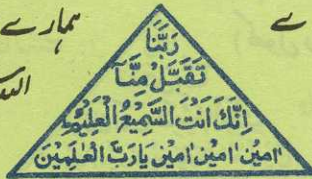 ہمارے
رَبَّنَا
تَقَبَّلْ مِنَّا
اِنَّكَ اَنْتَ السَّمِيْعُ الْعَلِيْمُ
اٰمين اٰمين اٰمين يَارَبَّ الْعٰلَمِيْنَ